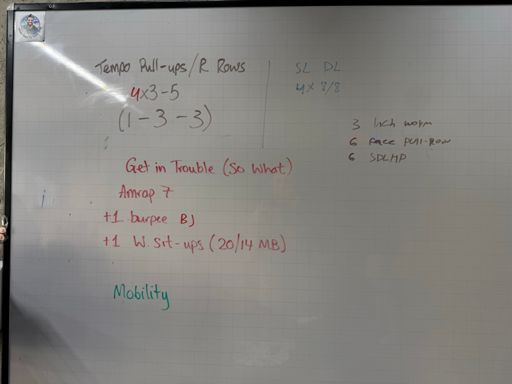 Tempo Pull-ups/R Rows
4x3-5
(1-3-3)
SL DL
4x 8/8
3 Inch worm
6 Face Pull-Row
6 SDLHP
Get in Trouble (So What)
Amrap 7
+1 burpee BJ
+1 W. Sit-ups (20/14 MB)
Mobility